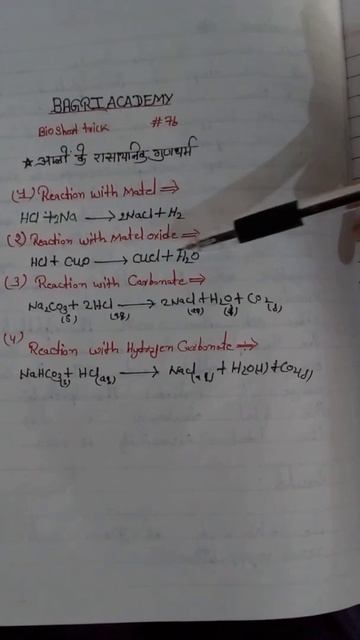 BAGRI ACADEMY
Bio Short trick #76
★ अम्लों के रासायनिक गुणधर्म
(1) Reaction with Matel ⇒
HCl + 2Na ⟶ 2NaCl + H2
(2) Reaction with Matel oxide ⇒
HCl + CuO ⟶ CuCl + H2O
(3) Reaction with Carbonate ⇒
Na2CO3 + 2HCl ⟶ 2NaCl + H2O + CO2
(s) (aq) (aq) (l) (g)
(4) Reaction with Hydrogen Carbonate ⇒
NaHCO3(s) + HCl(aq) ⟶ NaCl(aq) + H2O(l) + CO2(g)